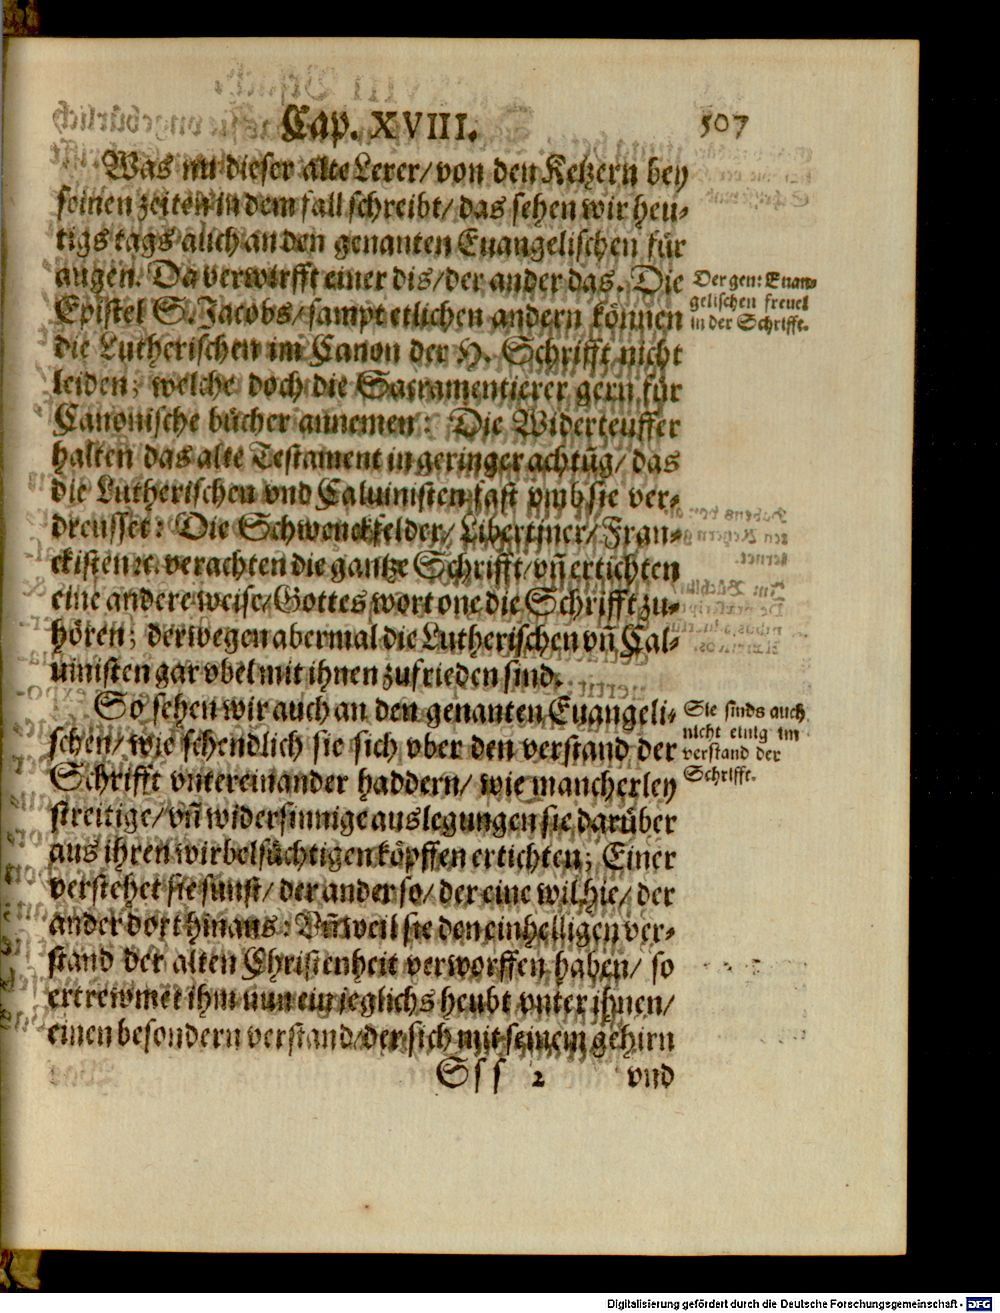 Cap. XVIII. 507
Was nu dieser alte Lerer/ von den Ketzern bey
seinen zeiten in dem fall schreibt/ das sehen wir heu-
tigs tags auch an den genanten Euangelischen für
augen. Da verwirfft einer dis/ der ander das. Die
Epistel S. Jacobs/ sampt etlichen andern können
die Lutherischen im Canon der H. Schrifft nicht
leiden; welche doch die Sacramentierer gern für
Canonische bücher annemen: Die Widerteuffer
halten das alte Testament in geringer achtũg/ das
die Lutherischen vnd Caluinisten fast vmb sie ver-
dreusset: Die Schwenckfelder/ Libertiner/ Fran-
ckisten ꝛc. verachten die gantze Schrifft/ vñ ertichten
eine andere weise/ Gottes wort one die Schrifft zu-
hören; derwegen abermal die Lutherischen vñ Cal-
uinisten gar vbel mit ihnen zufrieden sind.
Der gen: Euan-
gelischen freuel
in der Schrifft.
So sehen wir auch an den genanten Euangeli-
schen/ wie schendlich sie sich vber den verstand der
Schrifft vntereinander haddern/ wie mancherley
streitige/ vñ widersinnige auslegungen sie darüber
aus ihren wirbelsüchtigen köpffen ertichten; Einer
verstehet sie sunst/ der ander so/ der eine wil hie/ der
ander dort hinaus: Vñ weil sie den einhelligen ver-
stand der alten Christenheit verworffen haben/ so
ertrewmet ihm nun ein jeglichs heubt vnter ihnen/
einen besondern verstand/ der sich mit seinem gehirn
Sie sinds auch
nicht einig im
verstand der
Schrifft.
Sss 2 vnd
Digitalisierung gefördert durch die Deutsche Forschungsgemeinschaft - DFG